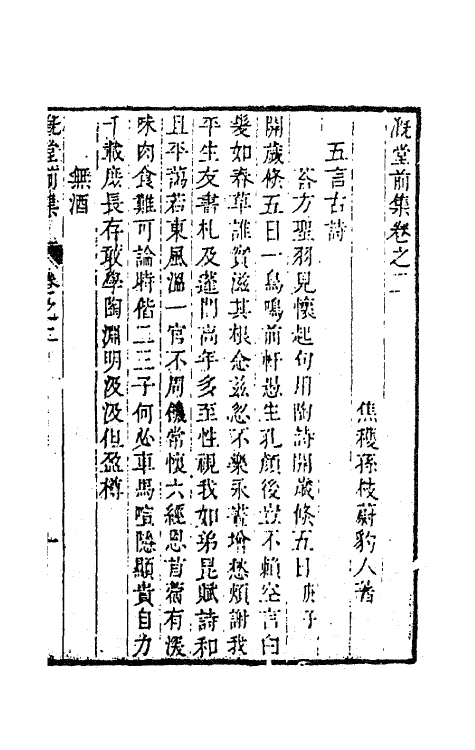 溉堂前集卷之二
焦穫孫枝蔚豹人著
五言古詩
答方聖羽見懷起句用陶詩開歲倏五日 庚子
開歲倏五日一鳥鳴前軒愚生孔顏後豈不賴空言白
髮如春草誰實滋其根念茲忽不樂永晝增愁煩謝我
平生友書札及蓬門高年多至性視我如弟昆賦詩和
且平藹若東風溫一官不周饑常懷六經恩苜蓿有深
味肉食難可論時偕二三子何必車馬喧隱顯貴自力
千載庶長存敢學陶淵明汲汲但盈樽
無酒
溉堂前集 卷之二 一